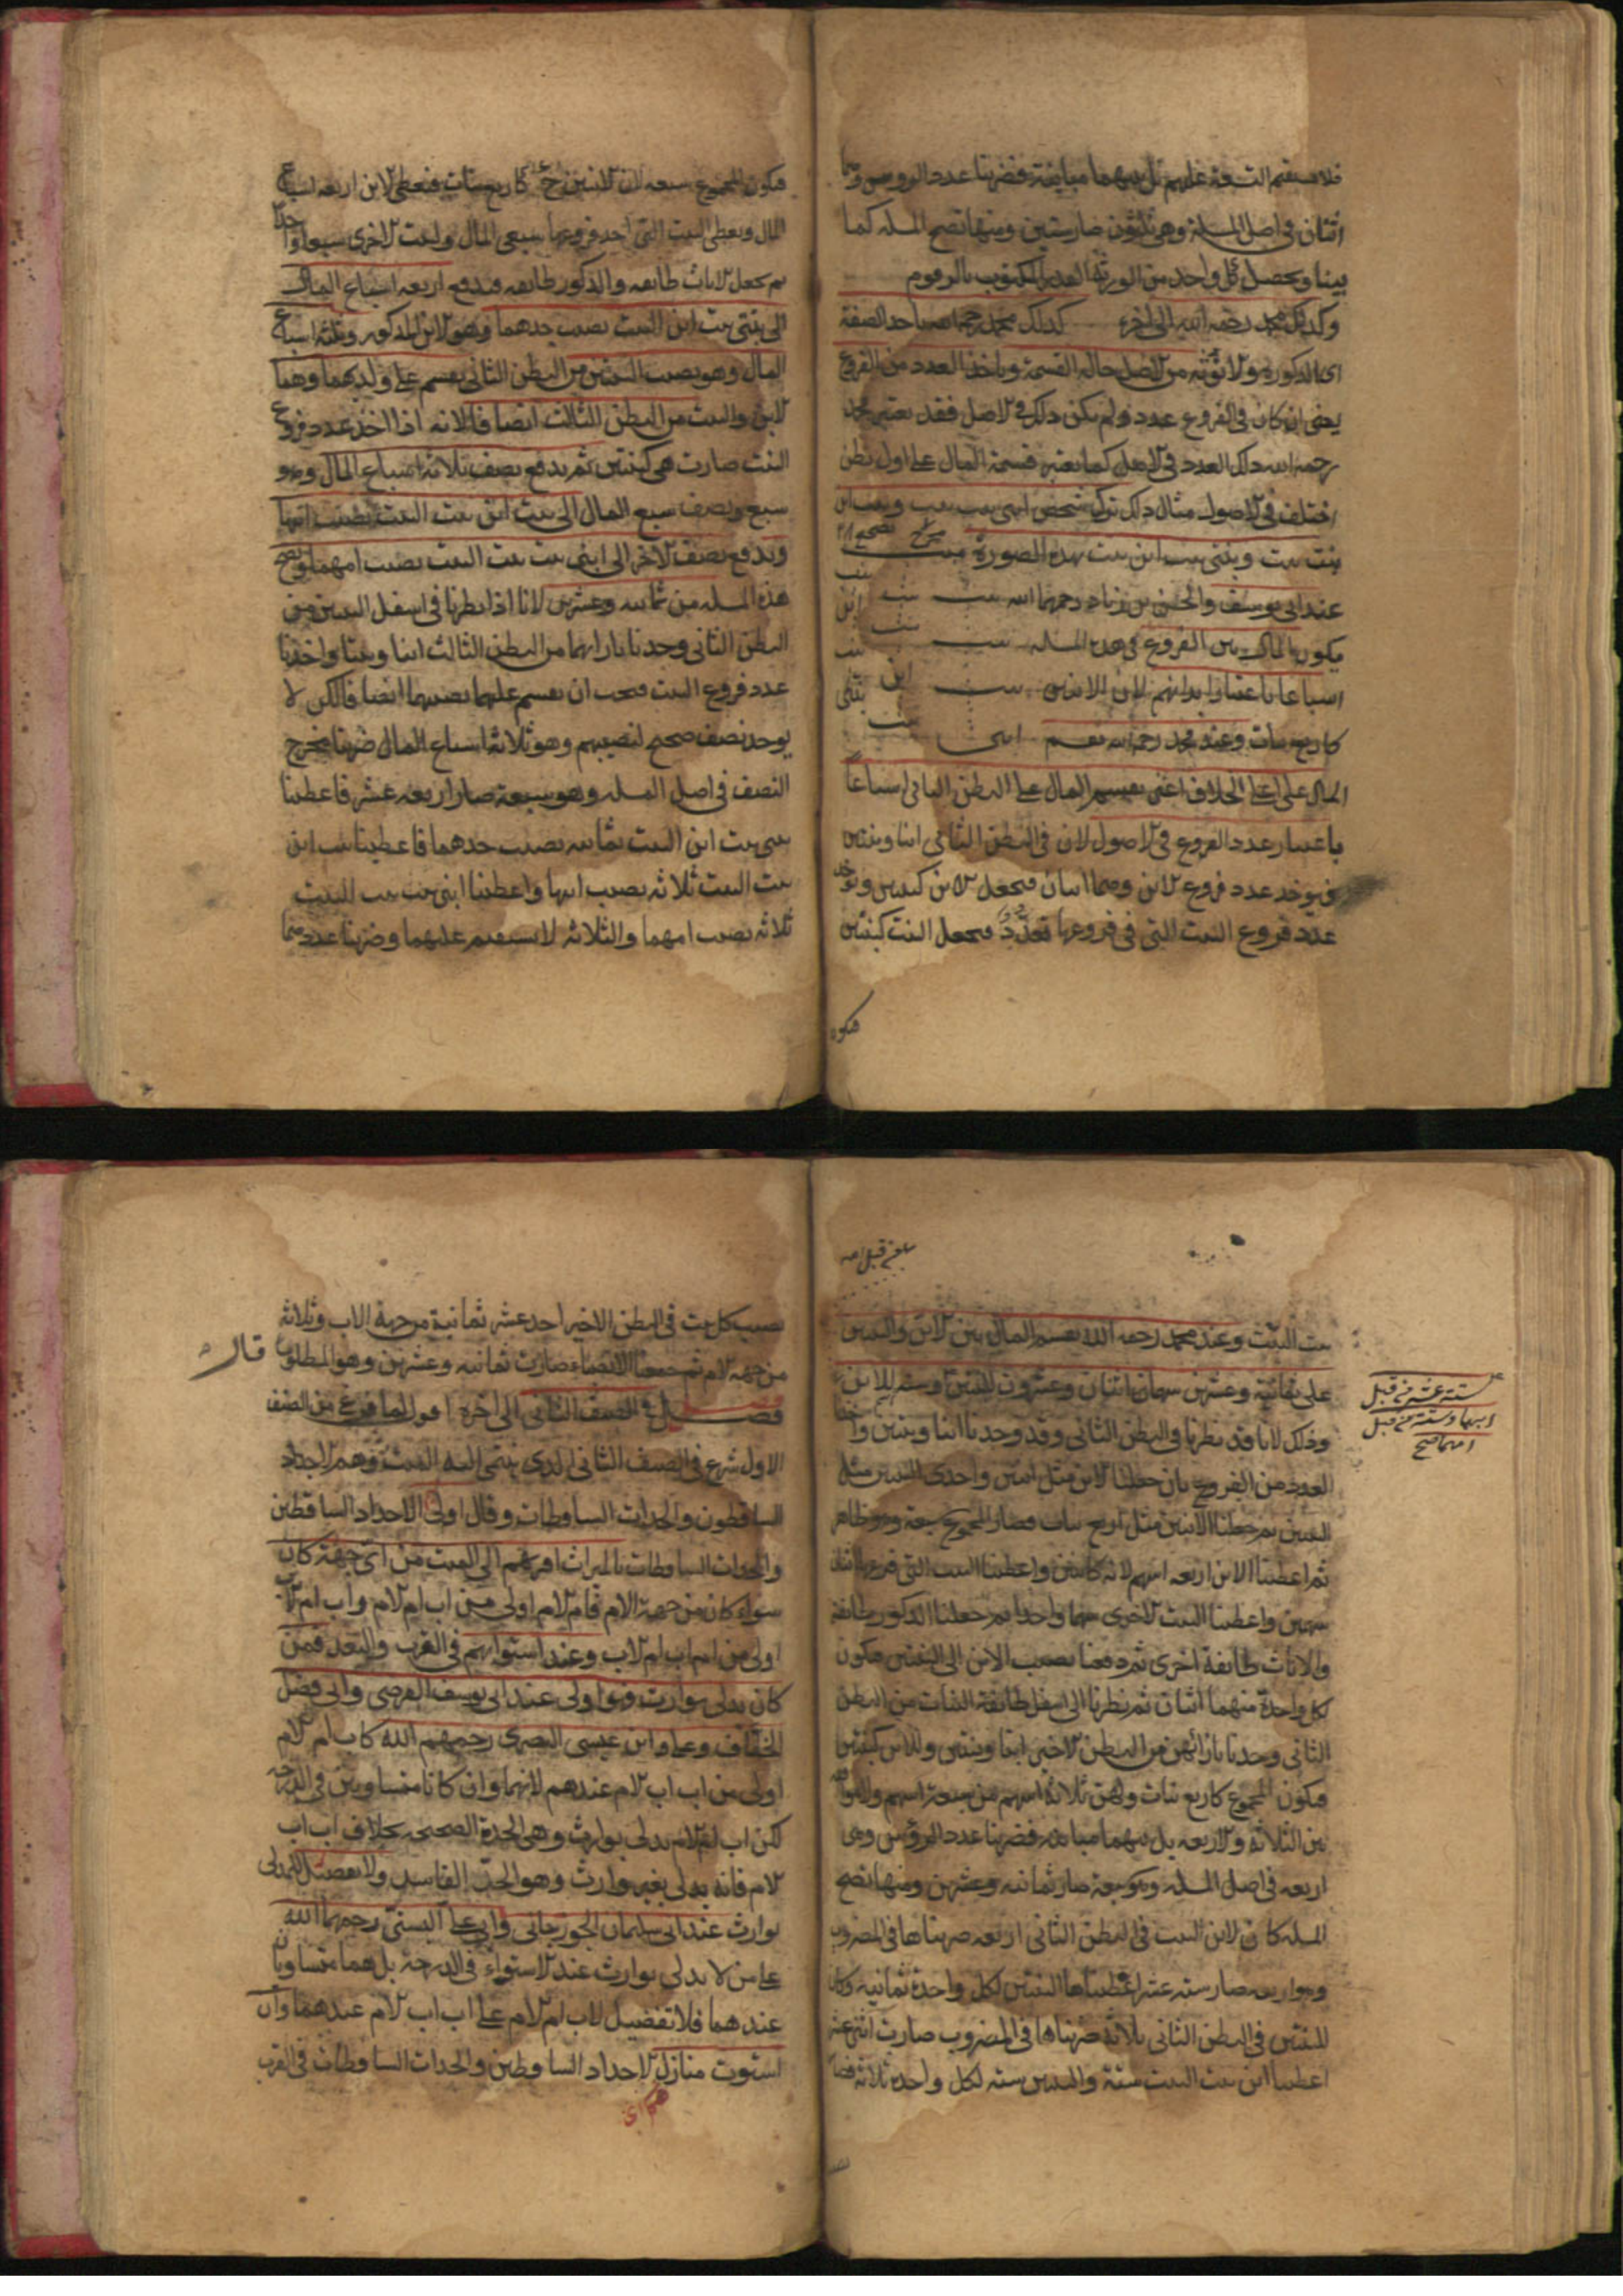 فلا يستقيم التسعة عليهم بل بينهما مباينة فضربنا عدد الرووس وهما
اثنان في اصل المسئلة وهي ثلثون صار ستين ومنها تصح المسئله كما
بينا ويحصل لكل واحد من الورثة العدد المكتوب بالرقوم
وكذلك محمد رحمه الله الى اخره كذلك محمد رحمه الله ياخذ الصفة
اى الذكورة والانوثه من الاصل حالة القسمة وياخذ العدد من الفروع
يعنى ان كان في الفروع عدد ولم يكن ذلك في الاصل فقد يعتبر محمد
رحمه الله ذلك العدد في الاصل كما يعتبر قسمة المال على اول بطن
اختلف في الاصول مثال ذلك ترك شخص ابنى بنت بنت وبنت ابن
بنت بنت وبنتي بنت ابن بنت بهذه الصورة ميت
عند ابى يوسف والحسن بن زياد رحمهما الله بنت بنت ابن
يكون المال بين الفروع في هذه المسئله بنت بنت بنت
اسباعا باعتبار ابدانهم لان الابنين بنت ابن بنتى
كاربع بنات وعند محمد رحمه الله يقسم ابنى بنت
المال على اعلى الخلاف اعنى يقسم المال على البطن الثانى اسباعاً
باعتبار عدد الفروع في الاصول لان في البطن الثانى ابنا وبنتين
فيوخذ عدد فروع الابن وهما اثنان فيجعل الابن كبنين ويوخذ
عدد فروع البنت التى في فروعها تعدد فيجعل البنت كبنتين
فيكون
فيكون المجموع سبعه لان الابنين كاربع بنات فيعطى الابن اربعه اسباع
المال ويعطى البنت التى احد فروعها سبعى المال والبنت الاخرى سبعا واحدا
ثم يجعل الاناث طائفه والذكور طائفه فيدفع اربعه اسباع المال
الى بنتى بنت ابن البنت نصيب جدهما وهو الابن المذكور وثلثة اسباع
المال وهو نصيب البنتين من البطن الثانى يقسم على ولديهما وهما
الابن والبنت من البطن الثالث انصافا لانه اذا اخذ عدد فروع
البنت صارت هى كبنتين ثم يدفع نصف ثلاثة اسباع المال وهو
سبع ونصف سبع المال الى بنت ابن بنت البنت نصيب ابيها
ويدفع نصف الاخر الى ابنى بنت بنت البنت نصيب امهما وتصح
هذه المسئله من ثمانيه وعشرين لانا اذا نظرنا في اسفل البنتين من
البطن الثانى وجدنا بازائهما من البطن الثالث ابنا وبنتا واخذنا
عدد فروع البنت فيجب ان يقسم عليهما نصيبهما انصافا لكن لا
يوجد نصف صحيح لنصيبهم وهو ثلاثة اسباع المال ضربنا مخرج
النصف في اصل المسئله وهو سبعة صار اربعه عشر فاعطينا
بنتى بنت ابن البنت ثمانيه نصيب جدهما فاعطينا بنت ابن
بنت البنت ثلاثه نصيب ابيها واعطينا ابنى بنت بنت البنت
ثلاثه نصيب امهما والثلاثه لا يستقيم عليهما وضربنا عددهما
بنت البنت وعند محمد رحمه الله يقسم المال بين الابن والبنتين
على ثمانية وعشرين سهما اثنان وعشرون للبنتين وسته للابن
ستة عشر من قبل
ابيهما وستة من قبل
امهما صح
وذلك لانا قد نظرنا في البطن الثانى وقد وجدنا ابنا وبنتين واخذنا
العدد من الفروع بان جعلنا الابن مثل ابنين واحدى البنتين مثل
البنتين ثم جعلنا الابنين مثل اربع بنات فصار المجموع سبعة وهو ظاهر
ثم اعطينا الابن اربعه اسهم لانه كابنين واعطينا البنت التى فرعها اثنان
سهمين واعطينا البنت الاخرى سهما واحدا ثم جعلنا الذكور طائفة
والاناث طائفة اخرى ثم دفعنا نصيب الابن الى البنتين فيكون
لكل واحدة منهما اثنان ثم نظرنا الى اسفل طائفة البنات من البطن
الثانى وجدنا بازائهن من البطن الاخير ابنا وبنتين وللابن كبنتين
فيكون المجموع كاربع بنات ولهن ثلاثة اسهم من سبعة اسهم ولا موافقه
بين الثلاثة والاربعه بل بينهما مباينه فضربنا عدد الرؤس وهى
اربعه في اصل المسئله وهو سبعة صار ثمانيه وعشرين ومنها تصح
المسئله كان لابن البنت في البطن الثانى اربعه ضربناها في المضروب
وهو اربعه صار سته عشر اعطيناها البنتين لكل واحدة ثمانيه وكان
للبنتين في البطن الثانى ثلاثة ضربناها في المضروب صارت اثنى عشر
اعطينا ابن بنت البنت ستة والبنتين سته لكل واحده ثلاثه فصار
نصيب كل بنت في البطن الاخير احد عشر ثمانية من جهة الاب وثلاثة
من جهه الام ثم جمعنا الانصباء صارت ثمانيه وعشرين وهو المطلوب قال
فصل في الصنف الثانى الى اخره اقول لما فرغ من الصنف
الاول شرع في الصنف الثانى الذى ينتمى اليه الميت وهم الاجداد
الساقطون والجدات الساقطات وقال اولى الاجداد الساقطين
والجدات الساقطات بالميراث اقربهم الى الميت من اى جهة كان
سواء كان من جهة الام فام الام اولى من اب ام الام واب ام الاب
اولى من ام اب ام الاب وعند استوائهم في القرب والبعد فمن
كان يدلى بوارث فهو اولى عند ابى يوسف الفرضى وابى فضل
الخفاف وعلى ابن عيسى البصرى رحمهم الله كاب ام الام
اولى من اب اب الام عندهم لانهما وان كانا متساويين في الدرجه
لكن اب ام الام يدلى بوارث وهى الجدة الصحيحه بخلاف اب اب
الام فانه يدلى بغير وارث وهو الجد الفاسد ولا تفضيل للمدلى
بوارث عند ابى سليمان الجوزجانى وابى على البستى رحمهما الله
على من لا يدلى بوارث عند الاستواء في الدرجة بل هما متساويان
عندهما فلا تفضيل لاب ام الام على اب اب الام عندهما وان
استوت منازل الاجداد الساقطين والجدات الساقطات في القرب